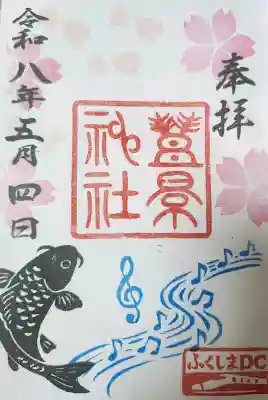 奉拝
豐景
神社
令和八年五月四日
ふくしまDC